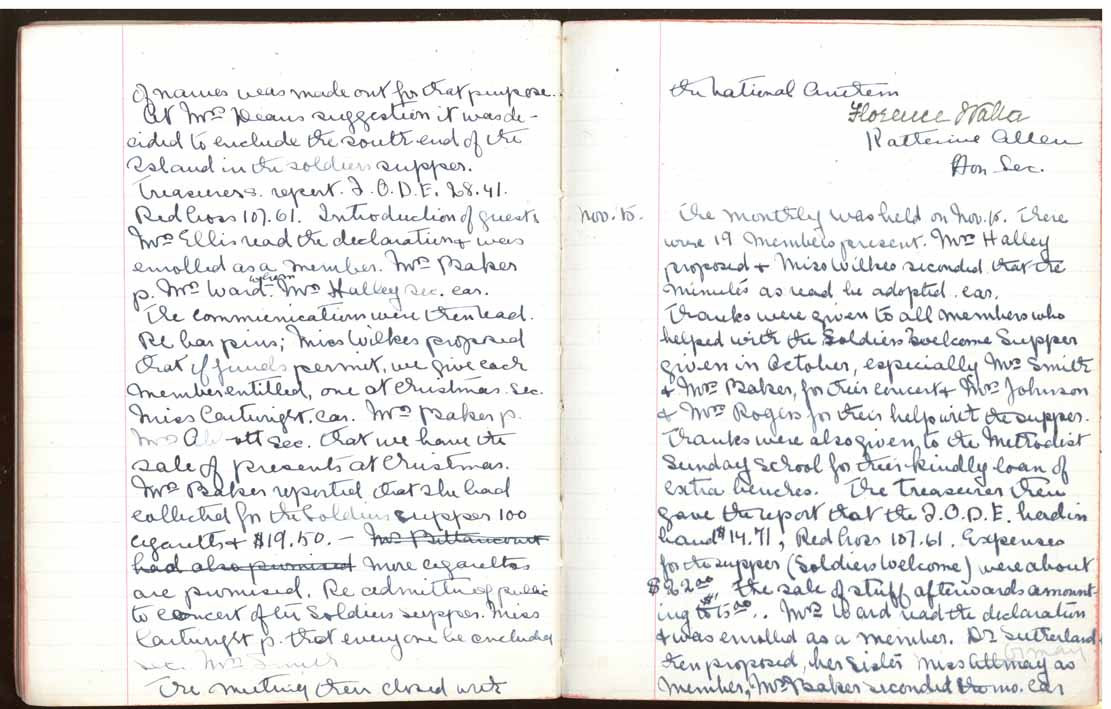 of names was made out for that purpose.
At Mrs Deans suggestion it was de-
cided to exclude the south end of the
Island in the soldiers supper.
Treasurers. report. I.O.D.E. 28.41.
Red Cross 107.61. Introduction of guests
Mrs Ellis read the declaration & was
enrolled as a member. Mrs Baker
p. Mrs Ward Mrs Halley sec. car.
The communications were then read.
Re bar pins; Miss Wilkes proposed
that if funds permit, we give each
member entitled, one at Christmas. Sec.
Miss Cartwright. Car. Mrs Baker p.
Mrs sec. that we have the
sale of presents at Christmas.
Mrs Baker reported that she had
collected for the Soldiers supper 100
cigaretts & $19.50. — Mrs Bittancourt
had also promised More cigarettes
are promised. Re admitting of public
to concert of the Soldiers supper. Miss
Cartwright p. that everyone be excluded
sec. Mrs Smith
The meeting then closed with
the National Anthem
Florence Walter
Katherine Allen
Hon. Sec.
Nov. 15. The monthly was held on Nov. 15. There
were 19 Members present. Mrs Halley
proposed & Miss Wilkes seconded that the
minutes as read be adopted. car.
Thanks were given to all members who
helped with the Soldiers Welcome Supper
given in October, especially Mrs Smith
& Mrs Baker, for their concert & Mrs Johnson
& Mrs Rogers for their help with the supper.
Thanks were also given to the Methodist
Sunday School for their kindly loan of
extra benches. The Treasurer then
gave the report that the I.O.D.E. had in
hand $14.71, Red Cross 107.61. Expenses
for the supper (Soldiers Welcome) were about
$22.00 the sale of stuff afterwards amount-
ing to $15.00. Mrs Ward read the declaration
& was enrolled as a member. Dr Sutherland
then proposed, her sister Miss Attmay as
Ormay
member, Mrs Baker seconded the mo. car